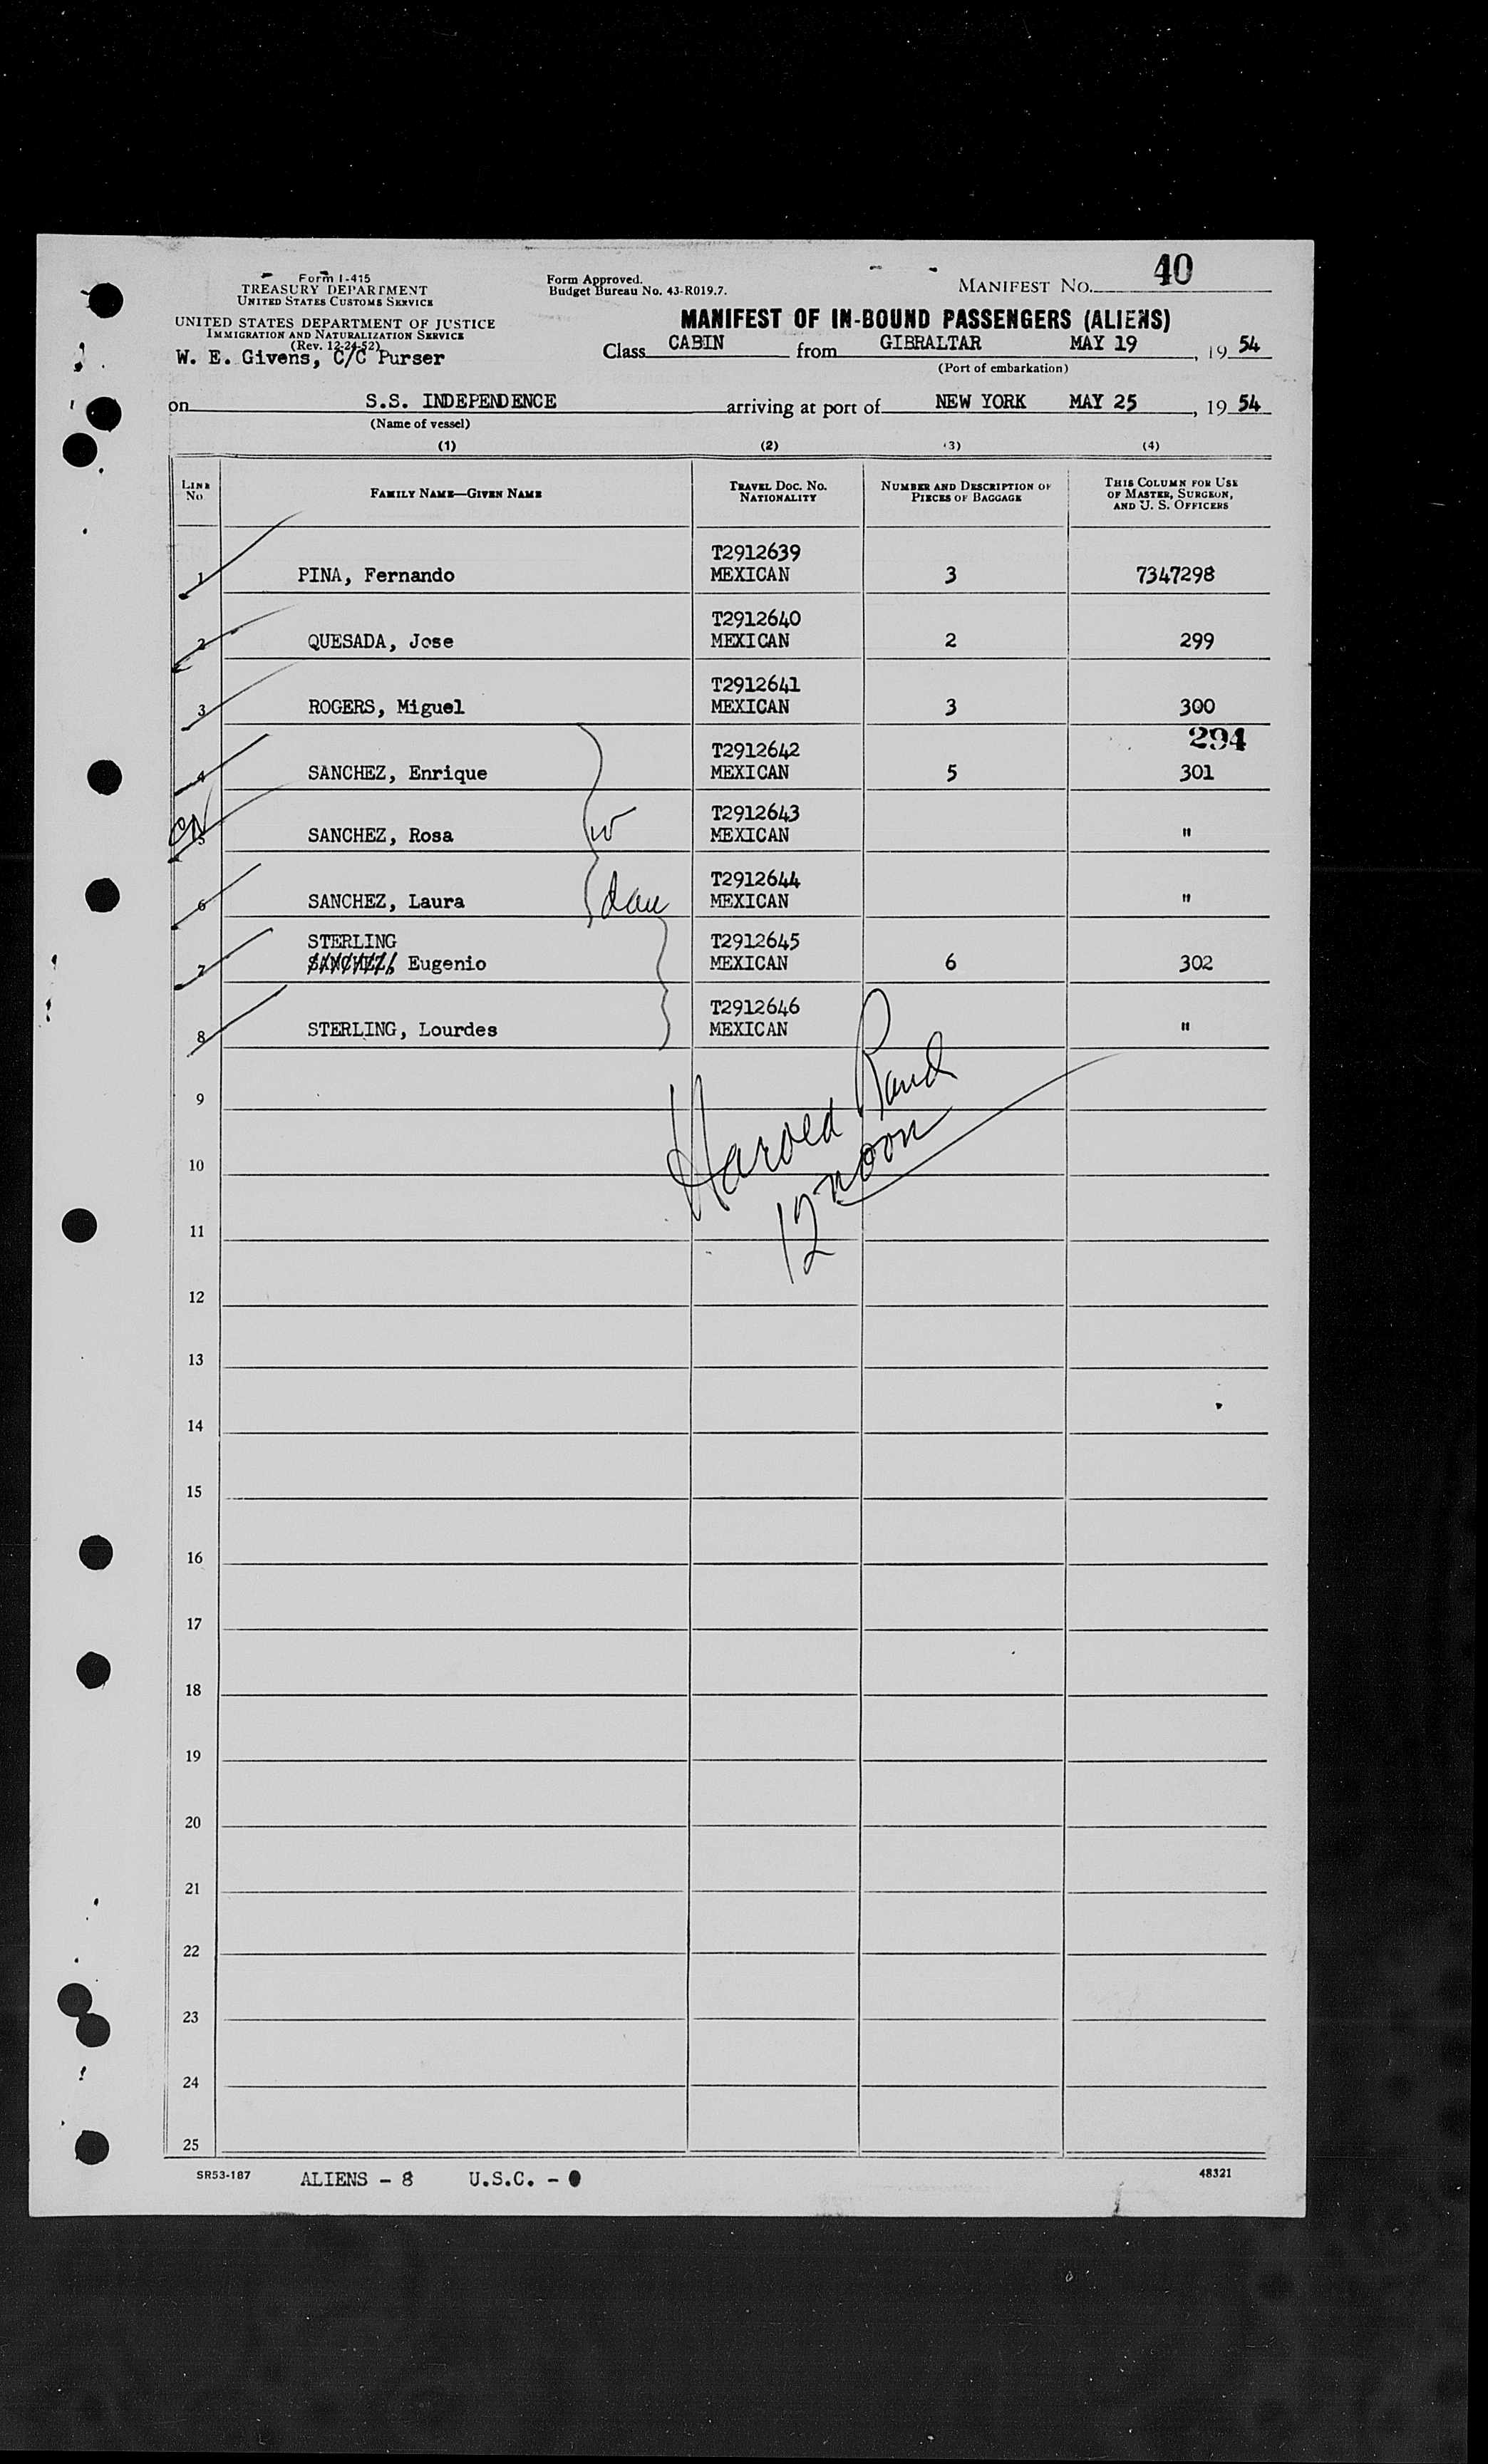 Form I-415
TREASURY DEPARTMENT
UNITED STATES CUSTOMS SERVICE
UNITED STATES DEPARTMENT OF JUSTICE
IMMIGRATION AND NATURALIZATION SERVICE
(Rev. 12-24-52)
W. E. Givens, C/C Purser
Form Approved.
Budget Bureau No. 43-R019.7.
MANIFEST NO. 40
MANIFEST OF IN-BOUND PASSENGERS (ALIENS)
Class CABIN from GIBRALTAR MAY 19, 19 54
(Port of embarkation)
on S.S. INDEPENDENCE arriving at port of NEW YORK MAY 25, 19 54
(Name of vessel)
(1) (2) (3) (4)
LINE No. FAMILY NAME—GIVEN NAME TRAVEL DOC. NO. NATIONALITY NUMBER AND DESCRIPTION OF PIECES OF BAGGAGE THIS COLUMN FOR USE OF MASTER, SURGEON, AND U. S. OFFICERS
T2912639
1 PINA, Fernando MEXICAN 3 7347298
T2912640
2 QUESADA, Jose MEXICAN 2 299
T2912641
3 ROGERS, Miguel MEXICAN 3 300
294
T2912642
4 SANCHEZ, Enrique MEXICAN 5 301
T2912643
5 SANCHEZ, Rosa w MEXICAN "
T2912644
6 SANCHEZ, Laura dau MEXICAN "
STERLING T2912645
7 SANCHEZ, Eugenio MEXICAN 6 302
T2912646
8 STERLING, Lourdes MEXICAN "
Harold Rand
12 noon
9
10
11
12
13
14
15
16
17
18
19
20
21
22
23
24
25
SR53-187 ALIENS - 8 U.S.C. - 0 48321